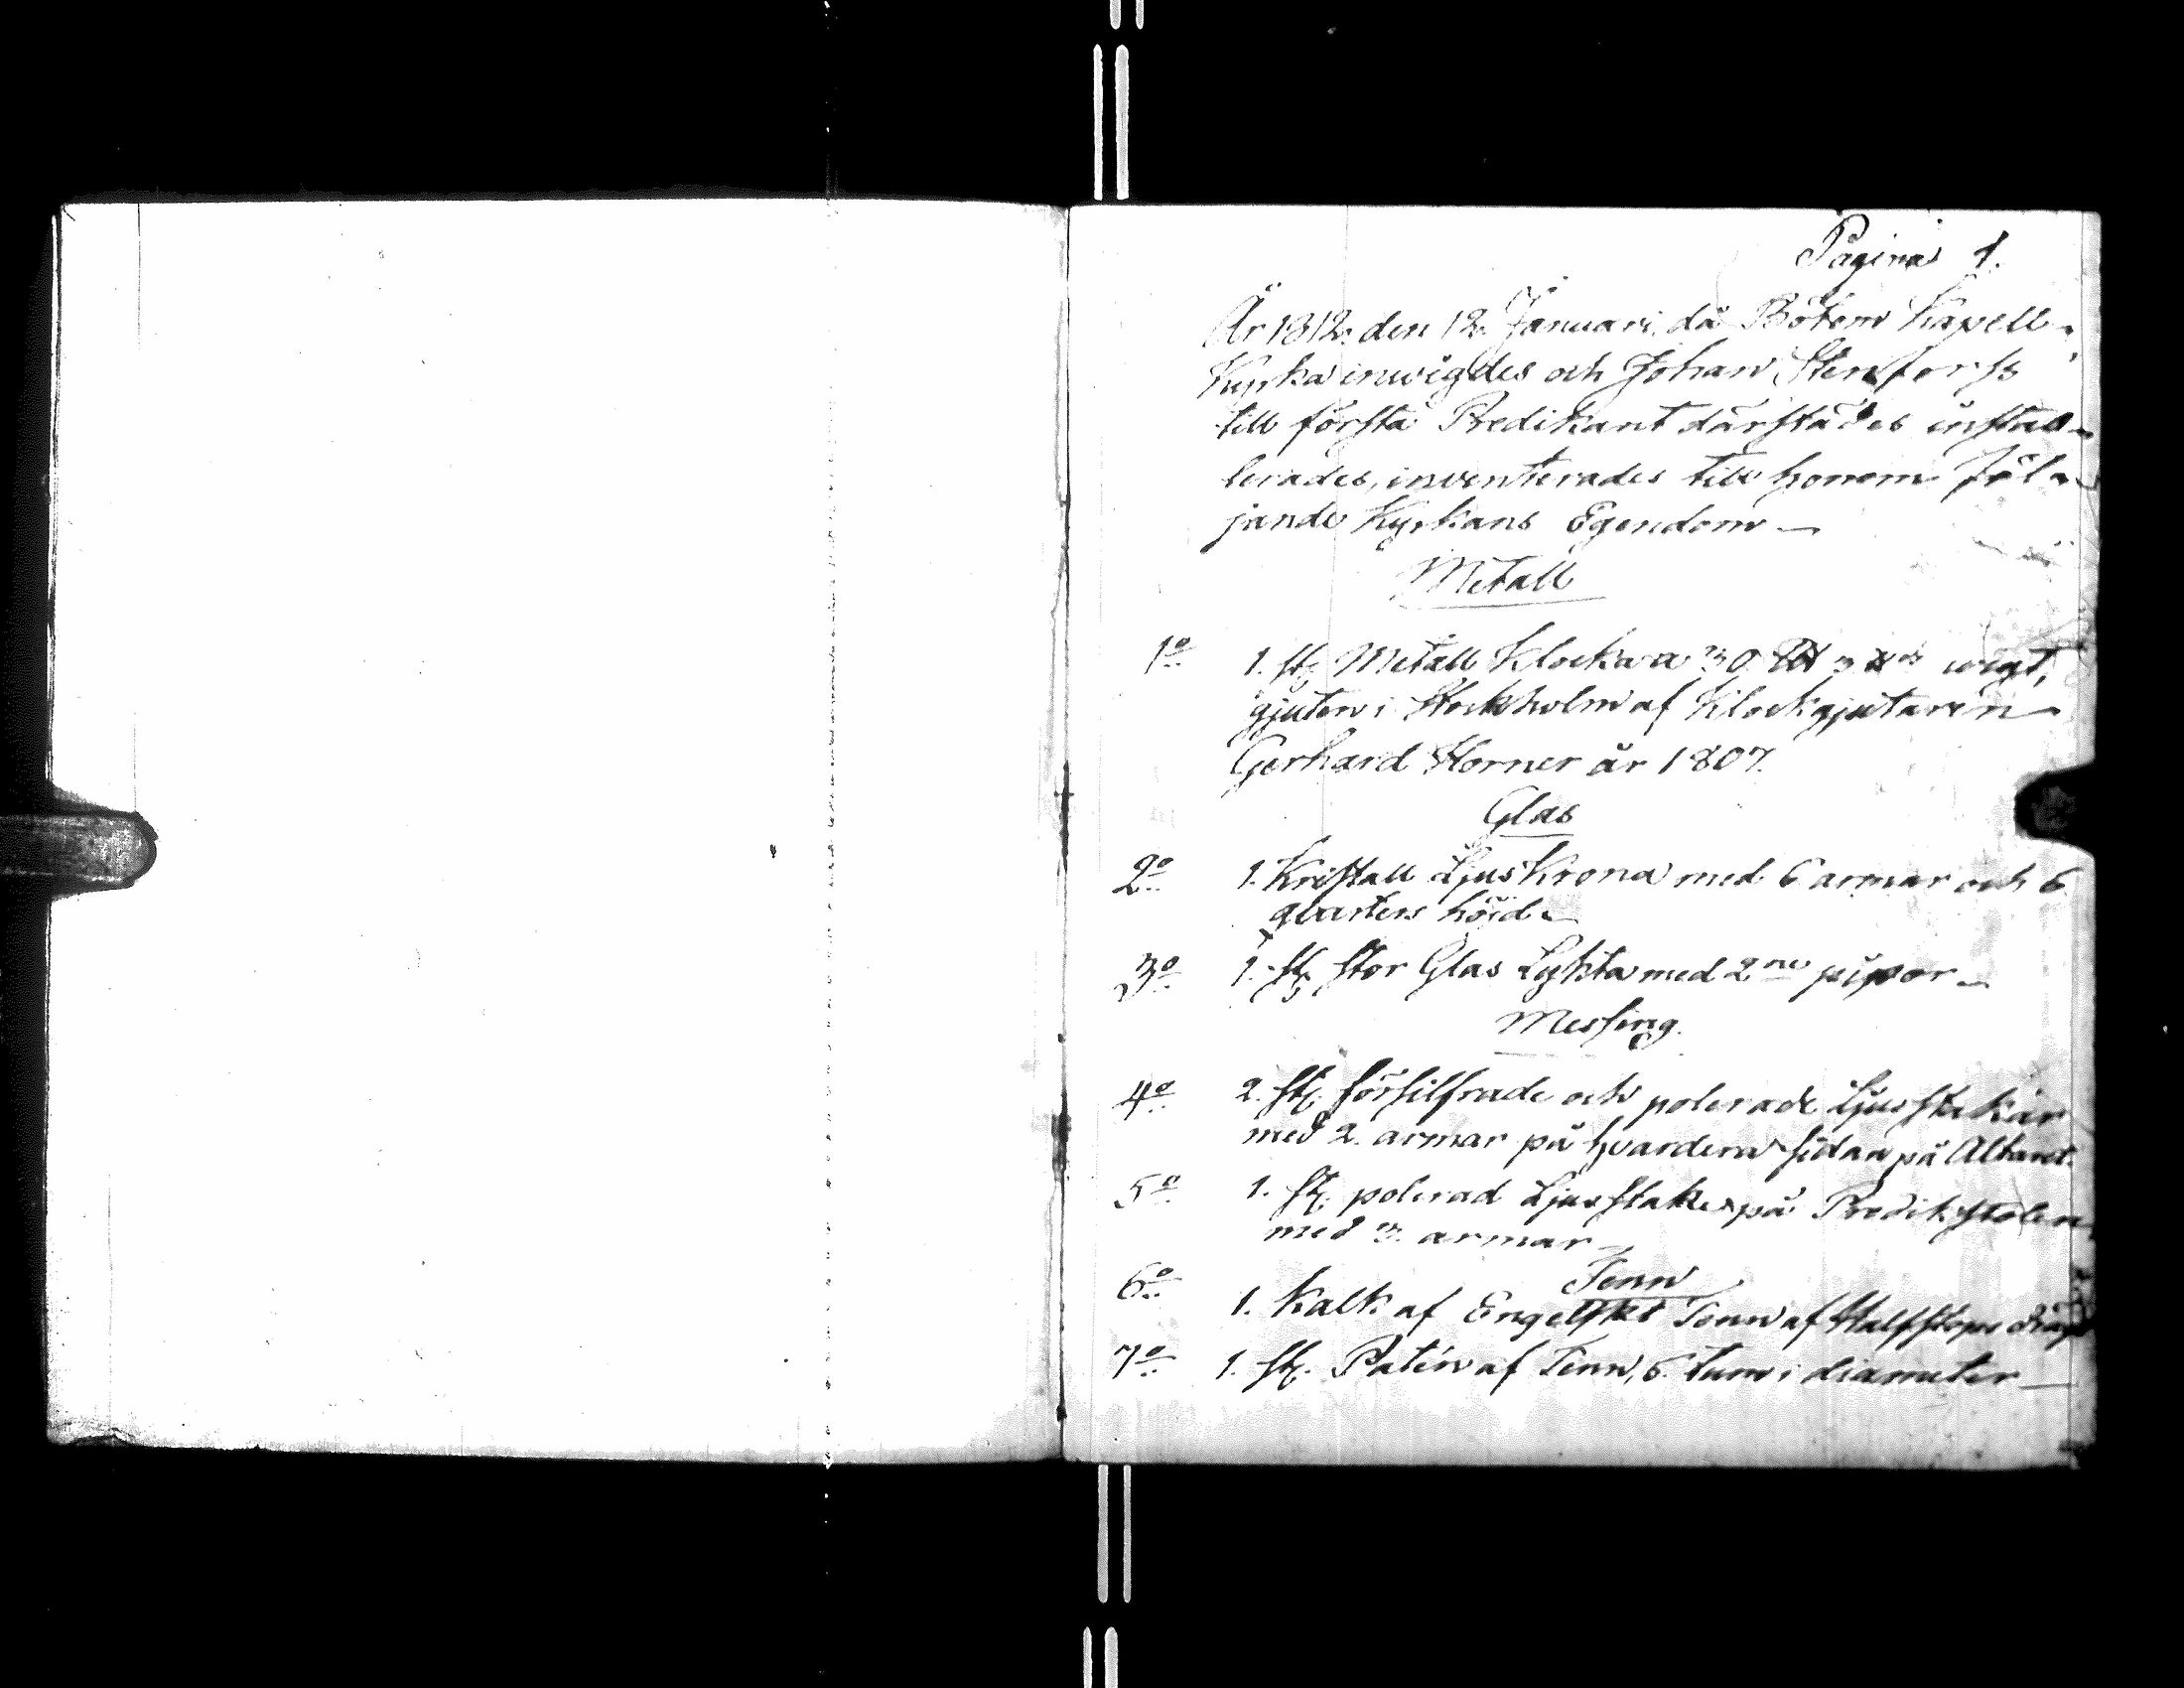 Pagina 1.
År 1812. den 12. Januari, då Bötem Kapell-
Kyrka inwigdes och Johan Stenforss
till första Predikant därstädes instal-
lerades, inventerades till honom föl-
jande Kyrkans Egendom —
Metall
1º 1. st. Metall Klocka a 30 wigt,
gjuten i Stockholm af Klockgjutaren
Gerhard Horner år 1807.
Glas
2º 1. Kristall Ljus Krona med 6 armar och 6
qvarters höjd —
3º 1. st. stor Glas Lykta med 2ne pipor —
Messing.
4º 2. st. försilfrade och polerade Ljusstakar
med 2. armar på hvardera sidan på Altaret.
5º 1. st. polerad Ljusstake på Predikstolen
med 3. armar —
Tenn
6º 1. Kalk af Engelskt Tenn af Halfstops
7º 1. st. Patén af Tenn, 6. tum i diameter —